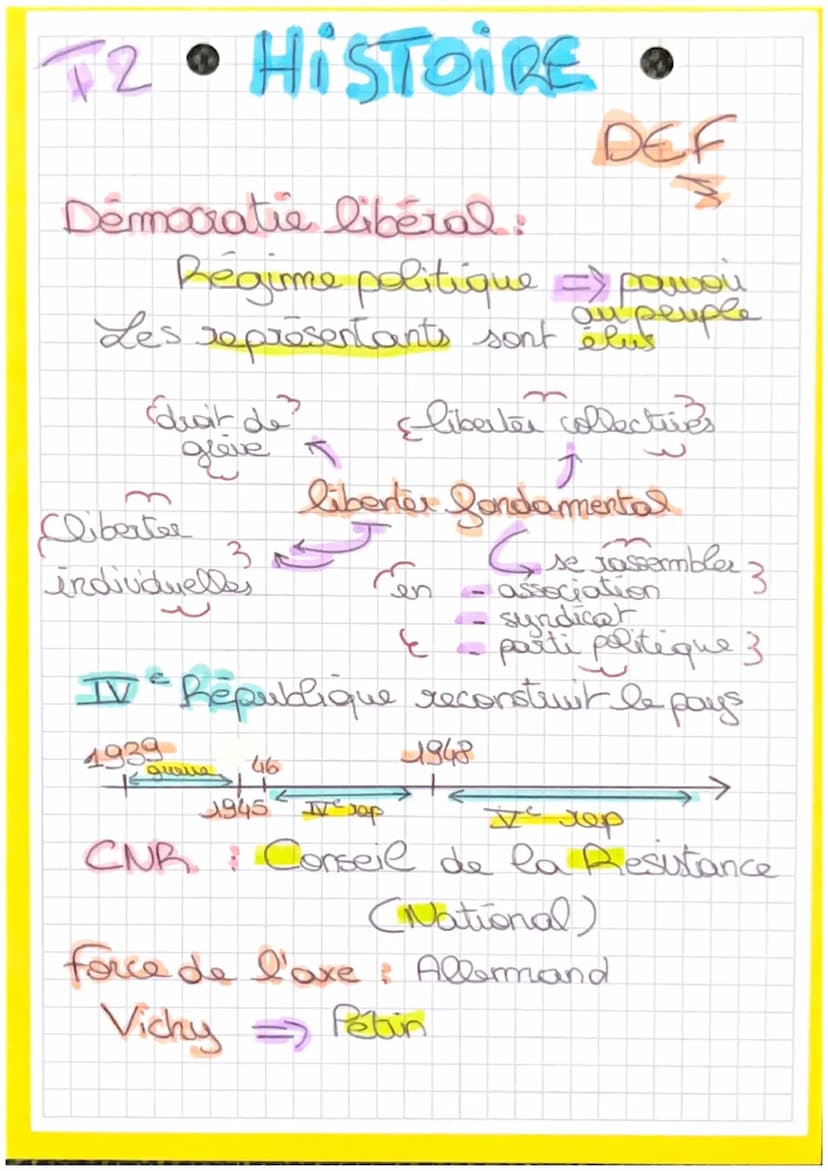 T2 HiSToiRE
DEF
Démocratie libéral :
Régime politique => pouvoir
au peuple
Les représentants sont élus
droit de
grève
libertés collectives
libertés fondamental
libertés
individuelles
se rassembler
en - association
- syndicat
- parti politique
IVe République reconstruit le pays
1939 guerre 46 1948
1945 IVe rep Ve rep
CNR : Conseil de la Resistance
(National)
force de l'axe : Allemand
Vichy => Pétin